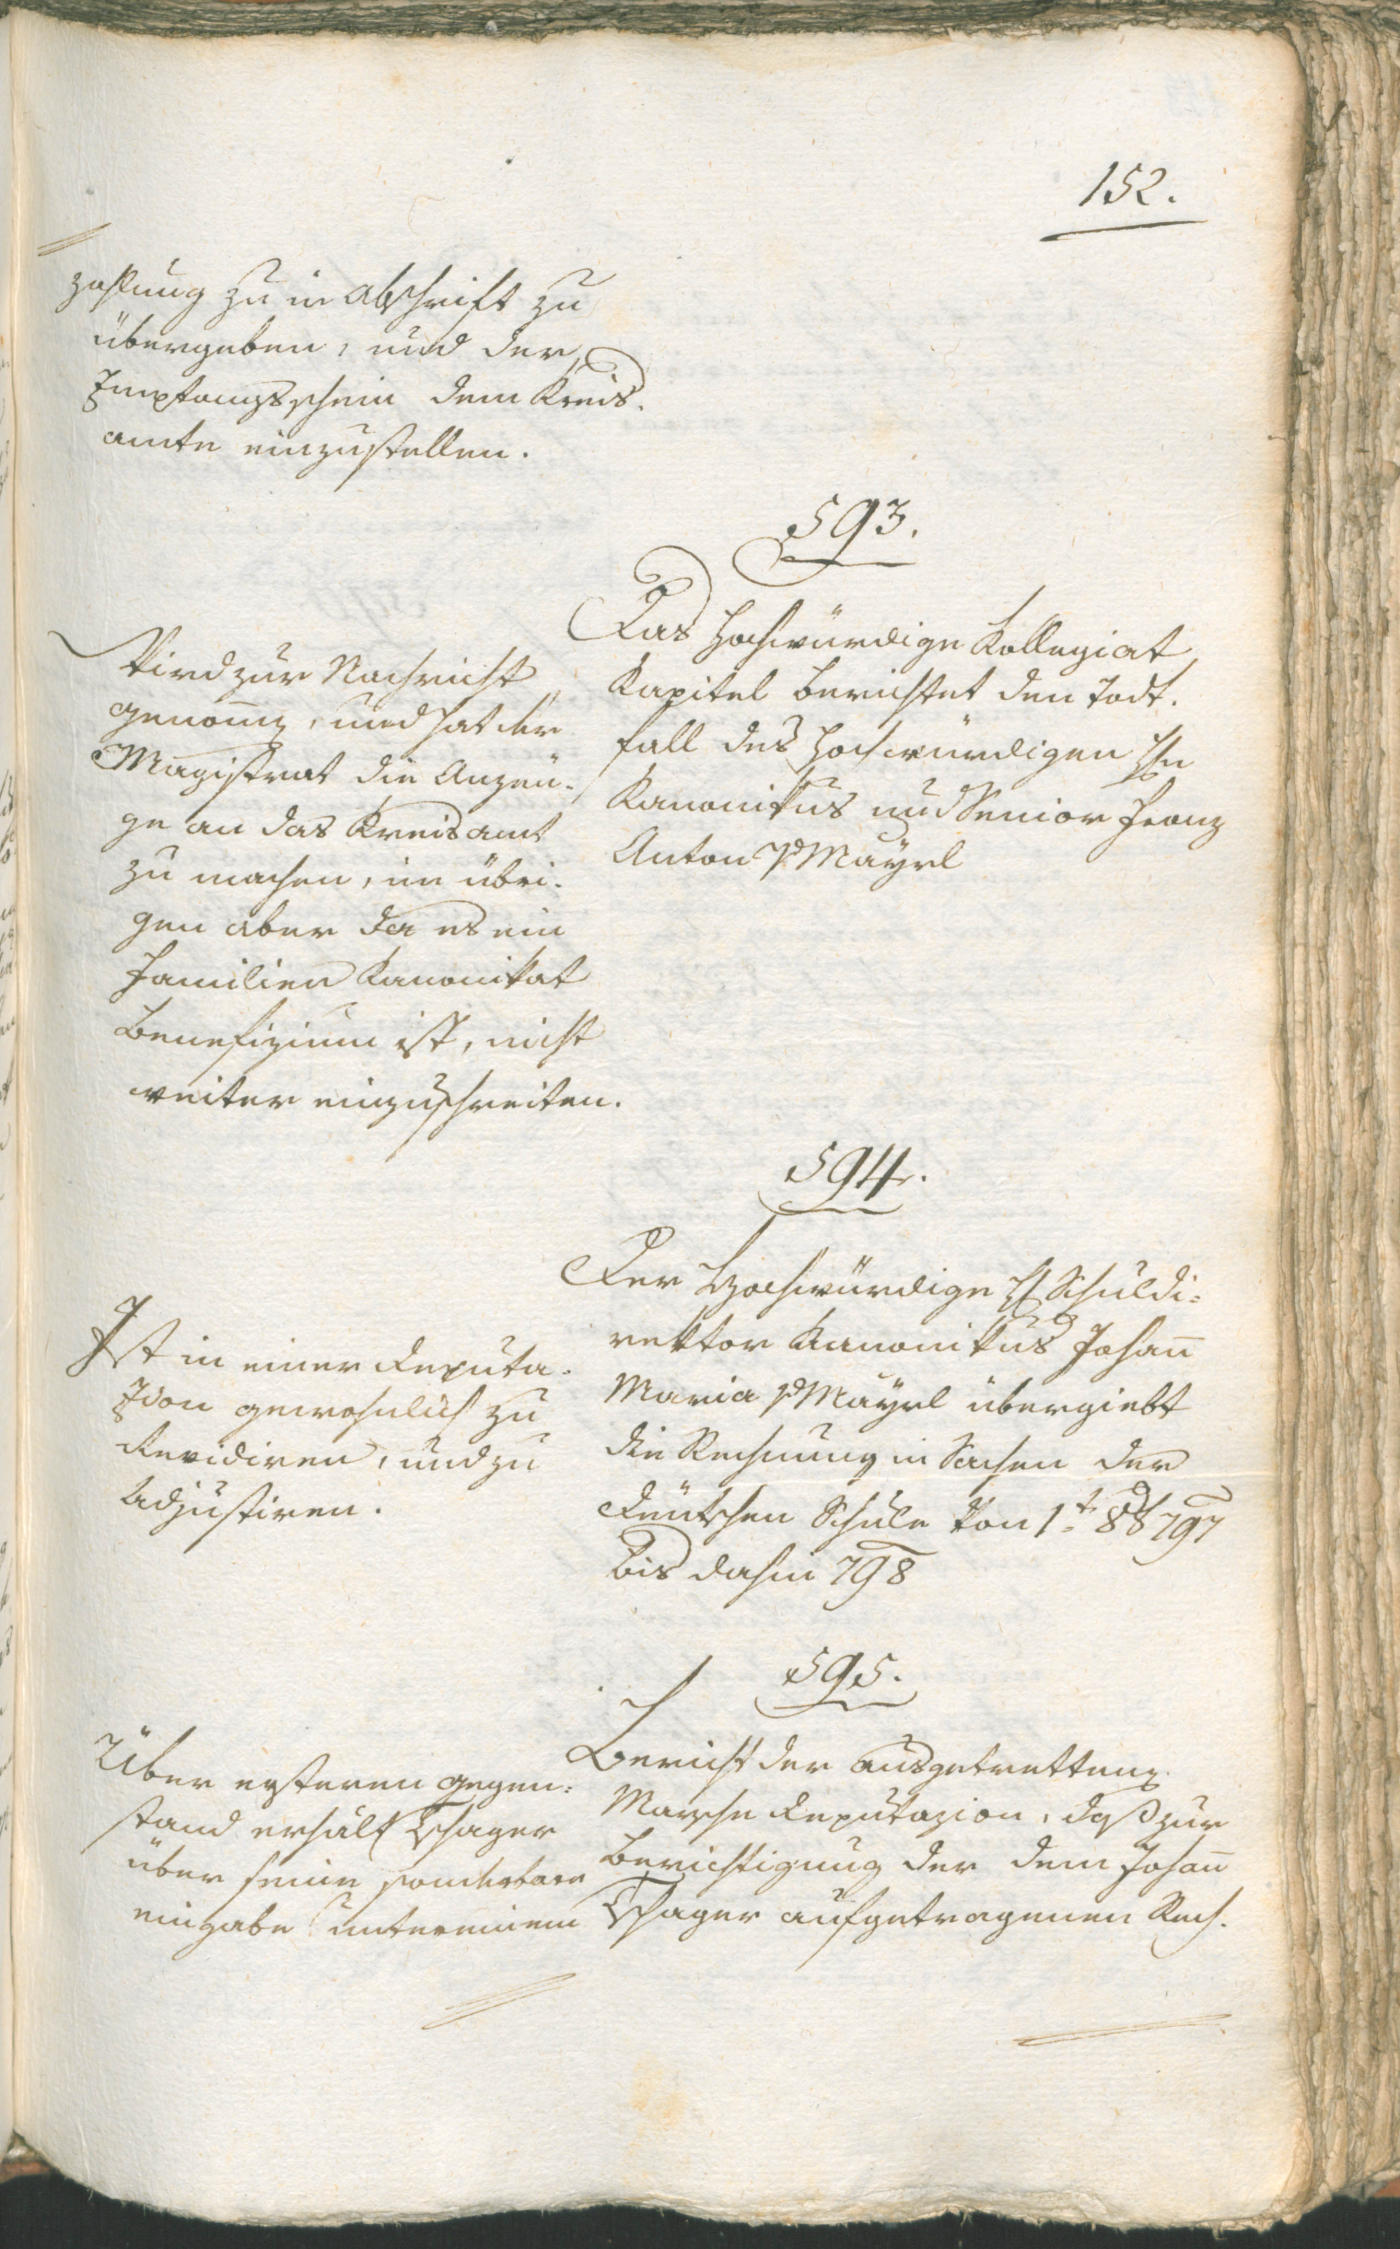 152.
zahlung zu in Abschrift zu
übergeben, und der
Empfangsschein dem Kreis-
amte einzustellen.
593.
Das Hochwürdige Kollegiat
Kapitel berichtet den Todt-
fall des Hochwürdigen Hn
Kanonikus und Senior Franz
Anton v Mayrl
Wird zur Nachricht
genomen, und hat der
Magistrat die Anzeü-
ge an das Kreisamt
zu machen, im übri-
gen aber da es ein
Familien Kanonikat
Benefizium ist, nicht
weiter einzuschreiten.
594.
Der Hochwürdige H Schuldi-
rektor Kanonikus Johann
Maria v Mayrl übergiebt
die Rechnung in Sachen der
deütschen Schule von 1t 8b 797
bis dahin 798
Ist in einer Deputa-
zion gewohnlich zu
Revidiren, und zu
Adjustiren.
595.
Bericht der ausgetrettenen
Marsche Deputazion, daß zur
Berichtigung der dem Johann
Tschager aufgetragenen Rech-
Über ersteren Gegen-
stand erhält Tschager
über seine sonderbare
eingabe unter einem